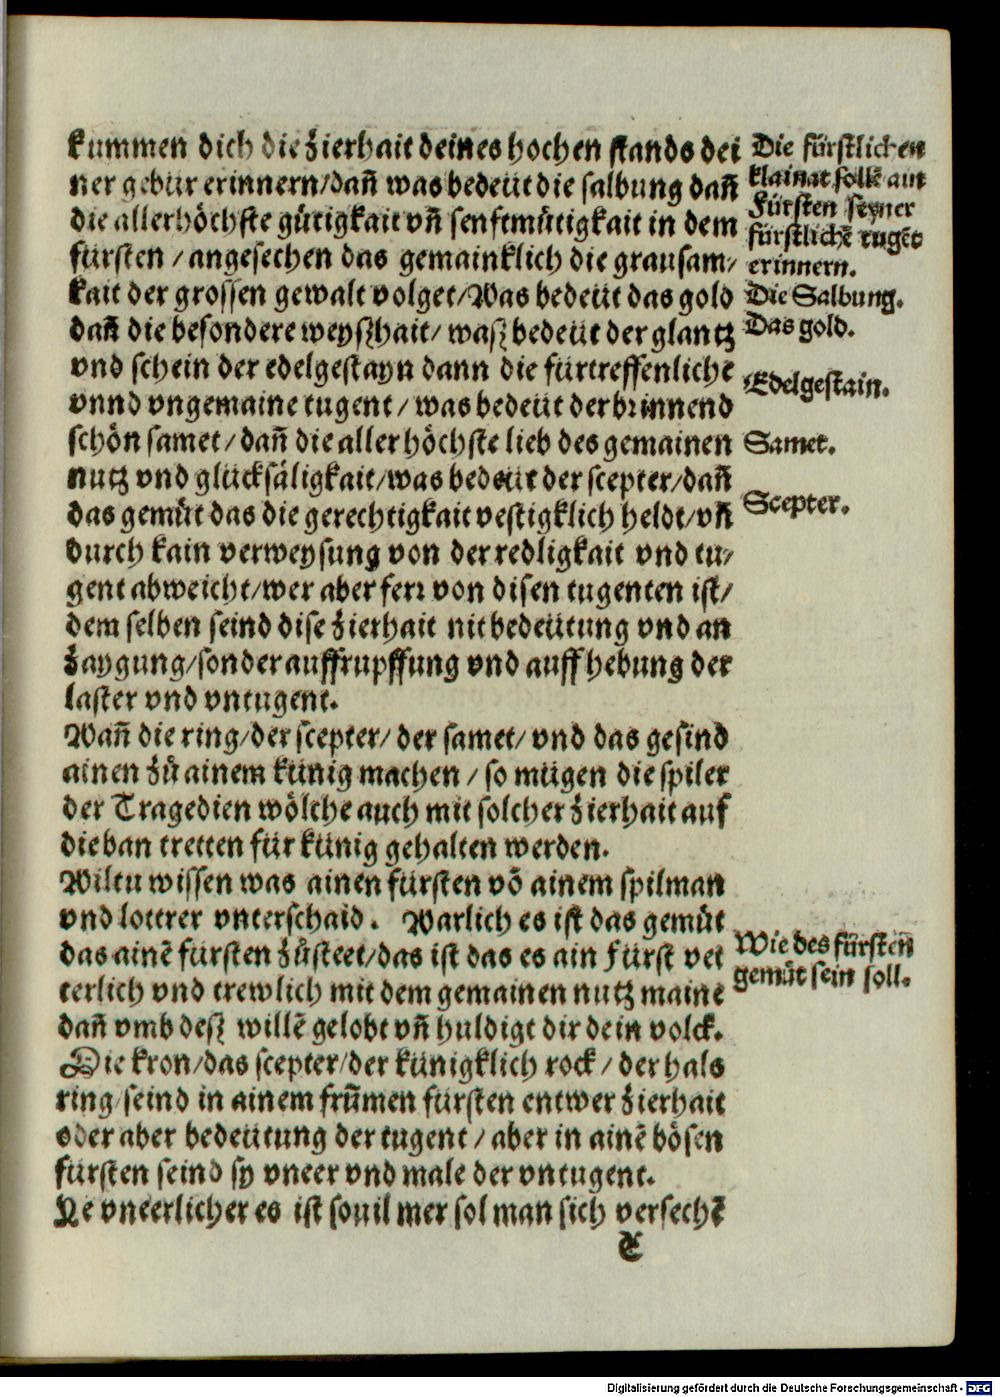 kummen dich die zierhait deines hochen stands dei
ner gebür erinnern/dañ was bedeüt die salbung dañ
die allerhöchste gütigkait vñ senftmütigkait in dem
fürsten / angesechen das gemainklich die grausam/
kait der grossen gewalt volget/Was bedeüt das gold
dañ die besondere weyßhait/ waß bedeüt der glantz
vnd schein der edelgestayn dann die fürtreffenliche
vnnd vngemaine tugent / was bedeüt der brinnend
schön samet/ dañ die aller höchste lieb des gemainen
nutz vnd glücksäligkait/was bedeüt der scepter/dañ
das gemüt das die gerechtigkait vestigklich heldt/vñ
durch kain verweysung von der redligkait vnd tu/
gent abweicht/wer aber ferr von disen tugenten ist/
dem selben seind dise zierhait nit bedeütung vnd an
zaygung/sonder auffrupffung vnd auff hebung der
laster vnd vntugent.
Wañ die ring/der scepter/ der samet/ vnd das gesind
ainen zů ainem künig machen / so mügen die spiler
der Tragedien wölche auch mit solcher zierhait auf
die ban tretten für künig gehalten werden.
Wiltu wissen was ainen fürsten võ ainem spilman
vnd lotter vnterschaid. Warlich es ist das gemüt
das ainẽ fürsten zůsteet/das ist das es ain Fürst vet
terlich vnd trewlich mit dem gemainen nutz maine
dañ vmb deß willẽ gelobt vñ huldigt dir dein volck.
Die kron/das scepter/der künigklich rock / der hals
ring/seind in ainem frũmen fürsten entwer zierhait
oder aber bedeütung der tugent / aber in ainẽ bösen
fürsten seind sy vneer vnd male der vntugent.
Ye vneerlicher es ist souil mer sol man sich versechẽ
C
Die fürstlichen
klainat sollẽ ain
Fürsten seyner
fürstlichẽ tugẽt
erinnern.
Die Salbung.
Das gold.
Edelgestain.
Samet.
Scepter.
Wie des fürsten
gemüt sein soll.
Digitalisierung gefördert durch die Deutsche Forschungsgemeinschaft - DFG